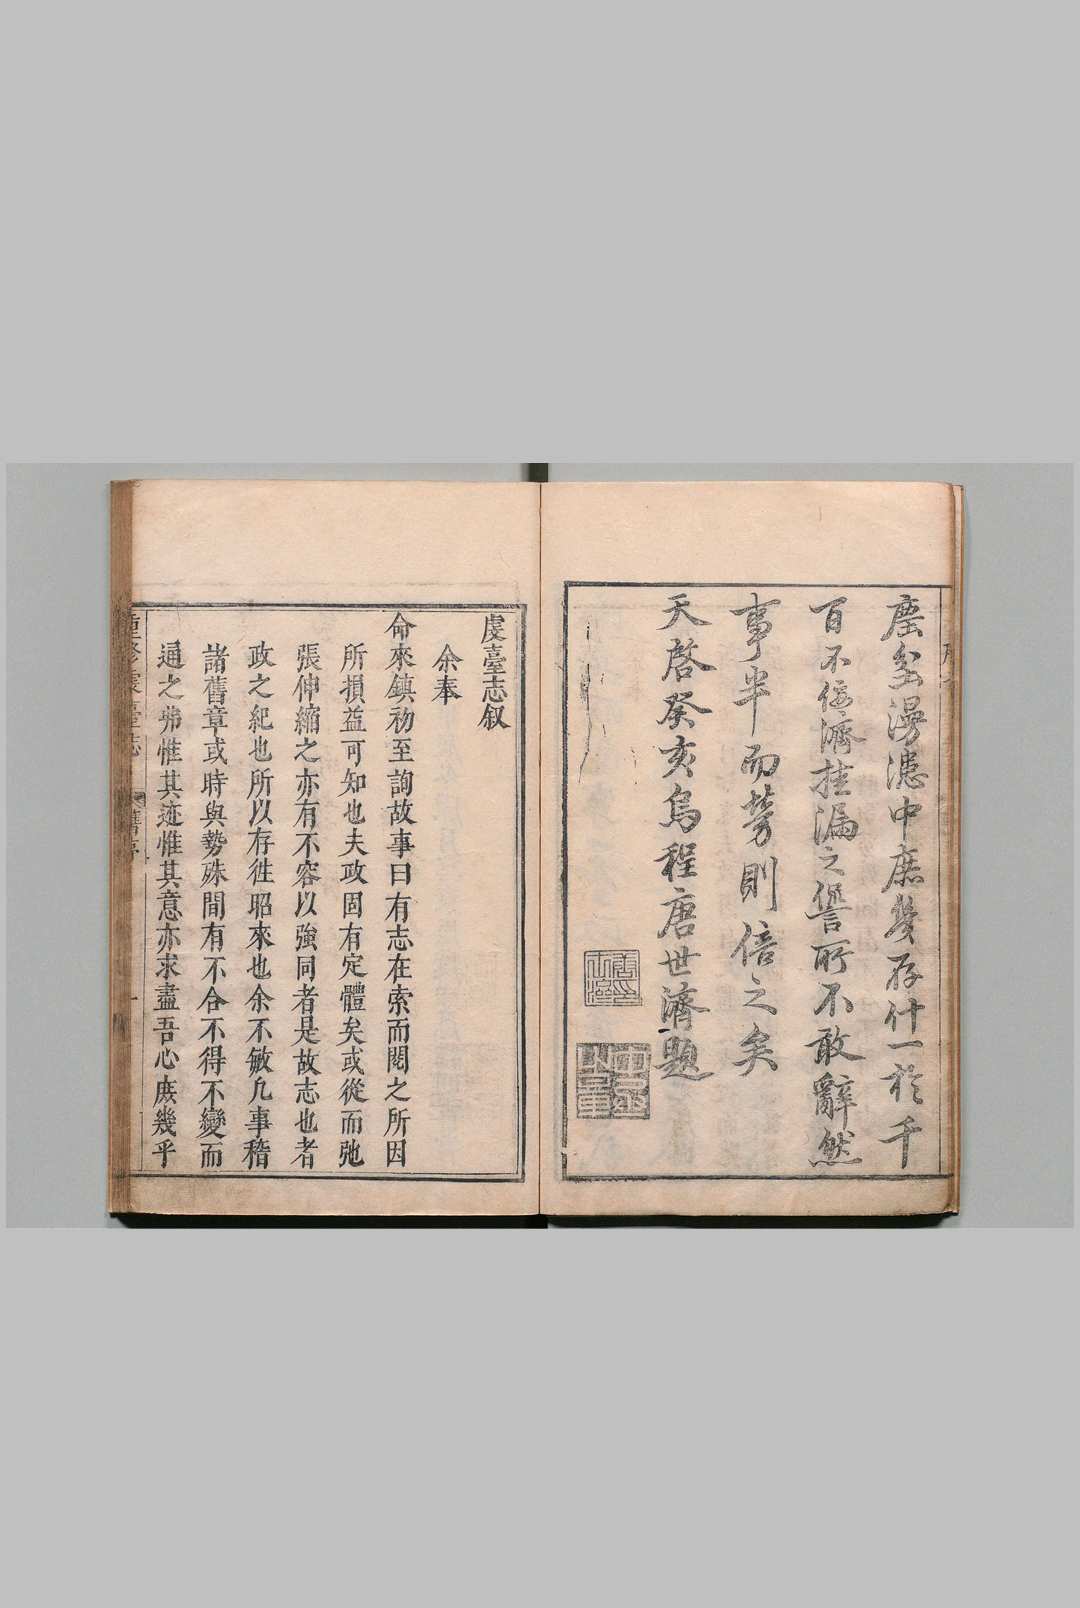 塵坌漫漶中庶幾存什一於千
百不佞濟挂漏之譽所不敢辭然
事半而勞則倍之矣
天啓癸亥烏程唐世濟題
虔臺志叙
余奉
命來鎮初至詢故事曰有志在索而閱之所因
所損益可知也夫政固有定體矣或從而弛
張伸縮之亦有不容以強同者是故志也者
政之紀也所以存徃昭來也余不敏凡事稽
諸舊章或時與勢殊間有不合不得不變而
通之弗惟其迹惟其意亦求盡吾心庶幾乎
重修虔臺志
舊序
一